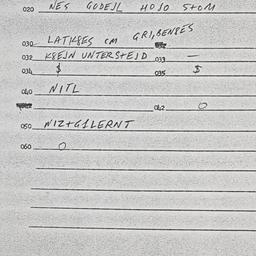 020 NES GODEJL HOJO S+OM
030 LATK8ES CM GRI,BENBES
032 K8EJN UNTERSTEJD 033 —
034 $ 035 $
040 NITL
042 0
050 NIZ+G1LERNT
060 0